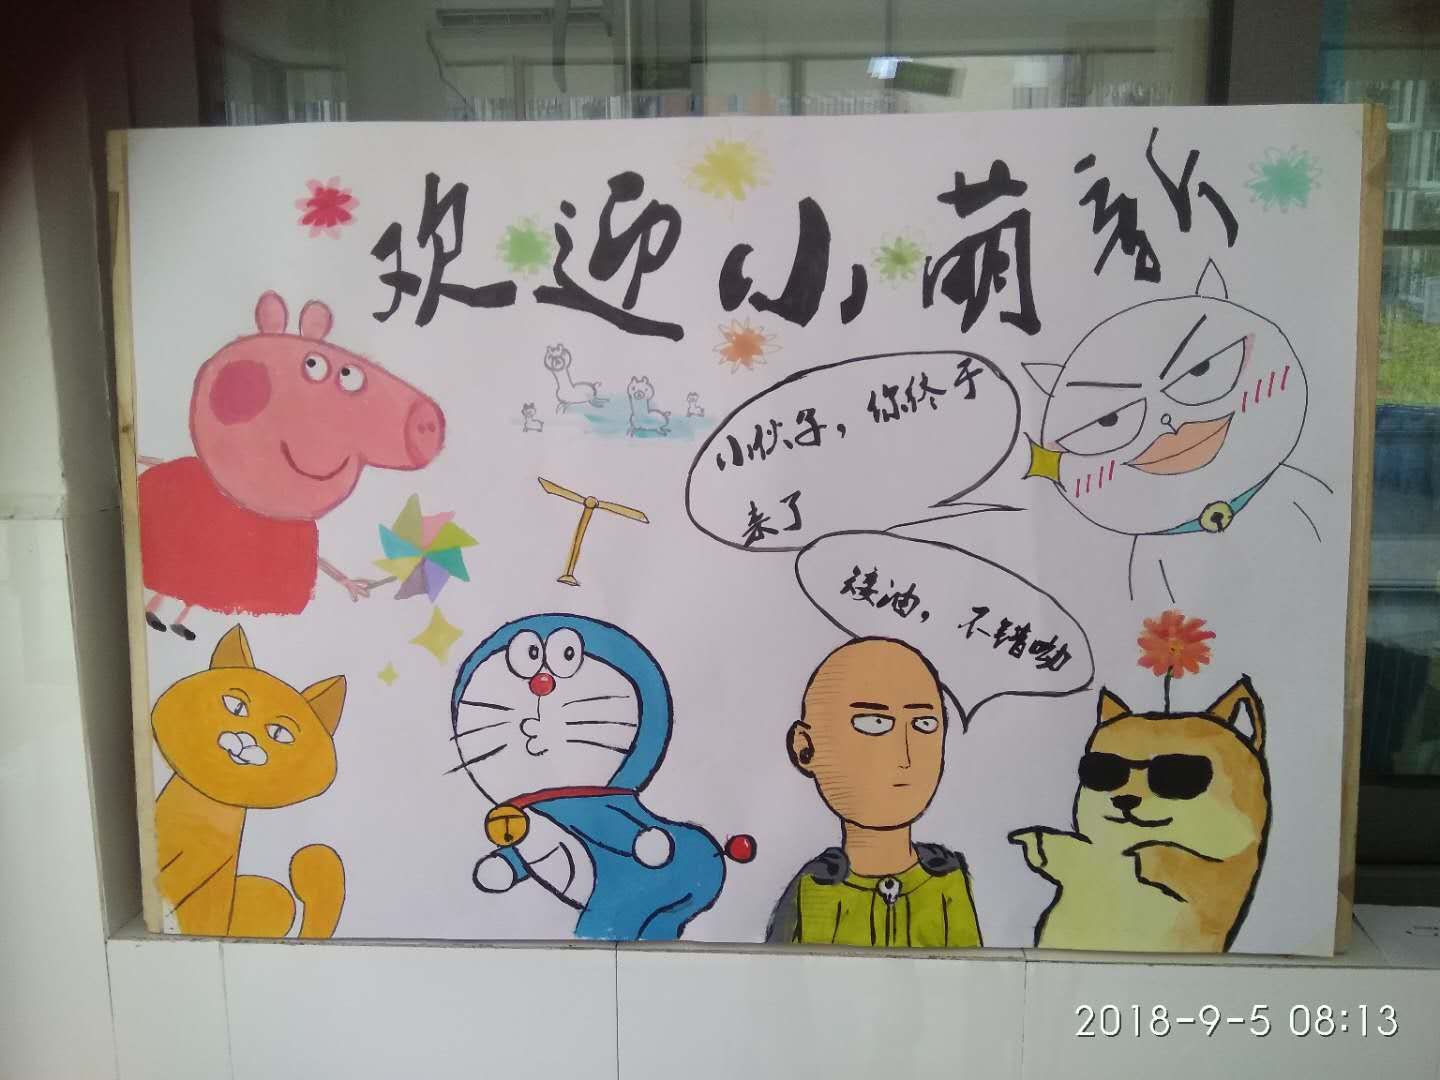 欢迎小萌新
小伙子，你终于
来了
矮油，不错呦
2018-9-5 08:13